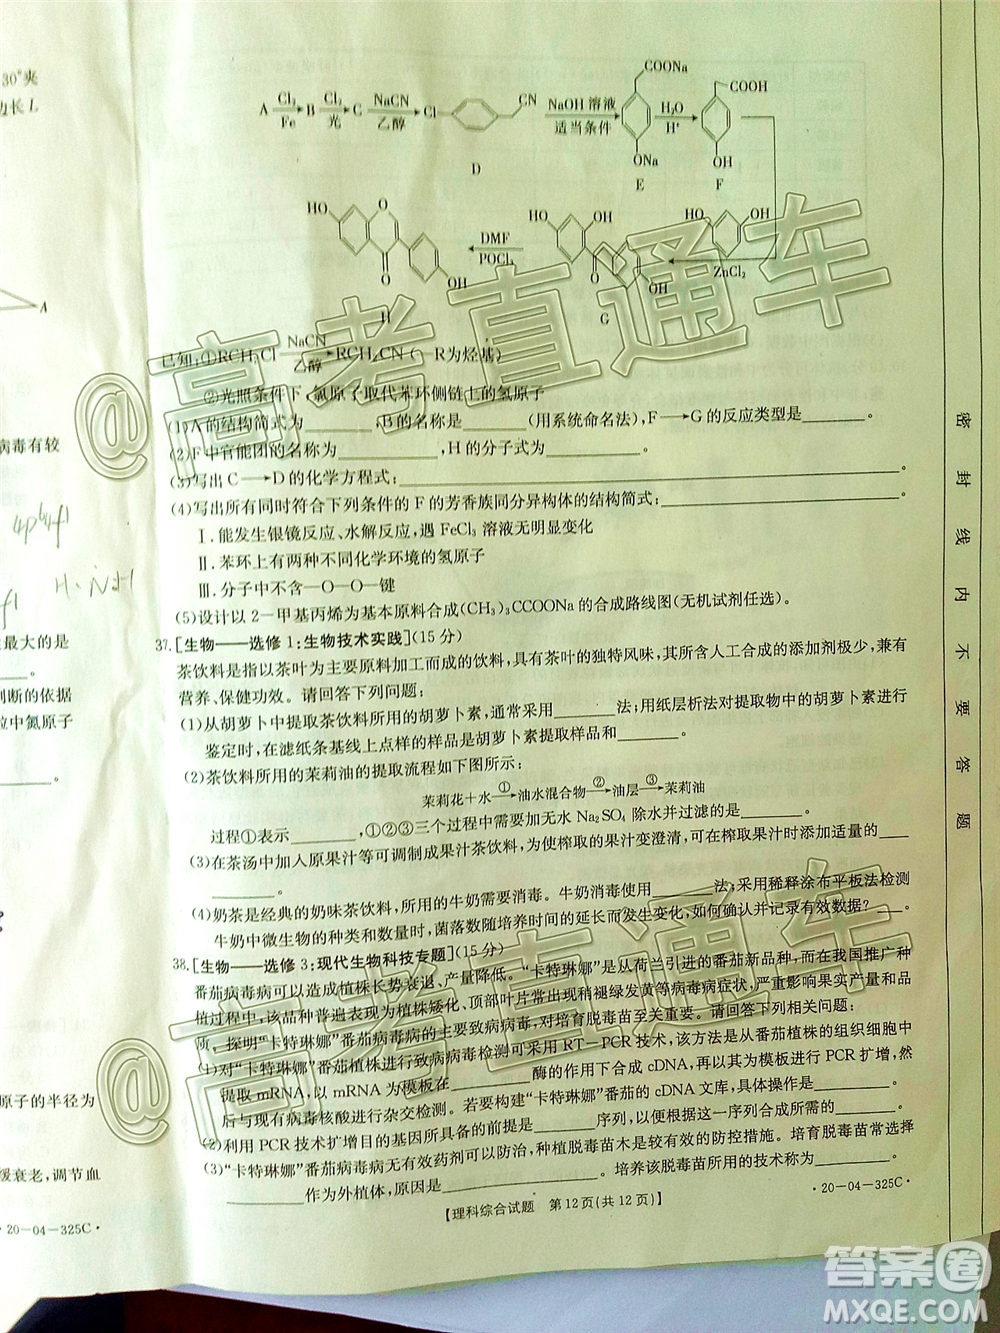 30°夹
边长 L
A
病毒有较
最大的是
判断的依据
粒中氮原子
原子的半径为
缓衰老,调节血
· 20—04—325C ·
A Cl₂ Fe B Cl₂ 光 C NaCN 乙醇 Cl CN NaOH 溶液 适当条件 COONa ONa H₂O H⁺ COOH OH
D E F
HO O O OH DMF POCl₃ HO OH O OH HO OH ZnCl₂
H G
已知:①RCH₂Cl NaCN 乙醇 RCH₂CN(—R为烃基)
②光照条件下,氯原子取代苯环侧链上的氢原子
(1)A的结构简式为______,B的名称为______(用系统命名法),F→G的反应类型是______。
(2)F中官能团的名称为______,H的分子式为______。
(3)写出 C→D的化学方程式:______。
(4)写出所有同时符合下列条件的 F 的芳香族同分异构体的结构简式:______
Ⅰ.能发生银镜反应、水解反应,遇 FeCl₃ 溶液无明显变化
Ⅱ.苯环上有两种不同化学环境的氢原子
Ⅲ.分子中不含—O—O—键
(5)设计以 2—甲基丙烯为基本原料合成(CH₃)₃CCOONa的合成路线图(无机试剂任选)。
37.[生物——选修 1:生物技术实践](15 分)
茶饮料是指以茶叶为主要原料加工而成的饮料,具有茶叶的独特风味,其所含人工合成的添加剂极少,有
营养、保健功效。请回答下列问题:
(1)从胡萝卜中提取茶饮料所用的胡萝卜素,通常采用______法;用纸层析法对提取物中的胡萝卜素进行
鉴定时,在滤纸条基线上点样的样品是胡萝卜素提取样品和______。
(2)茶饮料所用的茉莉油的提取流程如下图所示:
茉莉花+水 ① 油水混合物 ② 油层 ③ 茉莉油
过程①表示______,①②③三个过程中加无水 Na₂SO₄ 除水并过滤的是______。
(3)在茶汤中加入原果汁等可调制成果汁茶饮料,为使榨取的果汁变澄清,可在榨取果汁时添加适量的
______。
(4)奶茶是经典的奶味茶饮料,所用的牛奶需要消毒。牛奶消毒用______法;采用稀释涂布平板法检测
牛奶中微生物的种类和数量时,菌落数随培养时间的延长而发生变化,如何确认并记录有效数据?______。
38.[生物——选修 3:现代生物科技专题](15 分)
番茄病毒病可以造成植株长势衰退、产量降低。“卡特琳娜”是从荷兰引进的番茄新品种,而在我国推广种
植过程中,该品种普遍表现为植株矮化、顶部叶片常出现褪绿发黄等病毒病症状,严重影响果实产量和品
质,探明“卡特琳娜”番茄病毒病的主要致病病毒,对培育脱毒苗至关重要。请回答下列相关问题:
(1)对“卡特琳娜”番茄植株进行病毒检测可采用 RT—PCR 技术,该方法是从番茄植株的组织细胞中
提取 mRNA,以 mRNA 为模板在______酶的作用下合成 cDNA,再以其为模板进行 PCR 扩增,然
后与现有病毒核酸进行杂交检测。若要构建“卡特琳娜”番茄的 cDNA 文库,具体操作是______。
(2)利用 PCR 技术扩增目的基因所具备的前提是______序列,以便根据这一序列合成所需的______。
(3)“卡特琳娜”番茄病毒病无有效药剂可以防治,种植脱毒苗木是较有效的防控措施。培育脱毒苗时,一般选取
______作为外植体,原因是______。培养该脱毒苗的主要技术是______。
【理科综合试题 第 12 页(共 12 页)】
· 20—04—325C ·
密封线内不要答题
@高考直通车
@高考直通车
答案圈
MXQE.COM